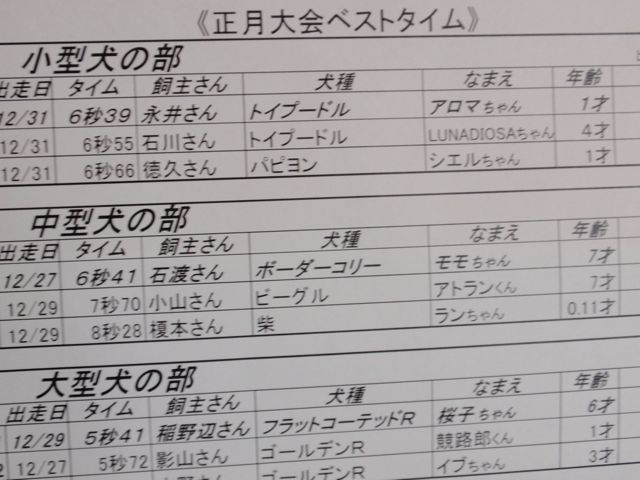 《正月大会ベストタイム》
小型犬の部
出走日 タイム 飼主さん 犬種 なまえ 年齢
12/31 6秒39 永井さん トイプードル アロマちゃん 1才
12/31 6秒55 石川さん トイプードル LUNADIOSAちゃん 4才
12/31 6秒66 徳久さん パピヨン シエルちゃん 1才
中型犬の部
出走日 タイム 飼主さん 犬種 なまえ 年齢
12/27 6秒41 石渡さん ボーダーコリー モモちゃん 7才
12/29 7秒70 小山さん ビーグル アトランくん 7才
12/29 8秒28 榎本さん 柴 ランちゃん 0.11才
大型犬の部
出走日 タイム 飼主さん 犬種 なまえ 年齢
12/29 5秒41 稲野辺さん フラットコーテッドR 桜子ちゃん 6才
2 12/27 5秒72 影山さん ゴールデンR 競路郎くん 1才
ゴールデンR イブちゃん 3才